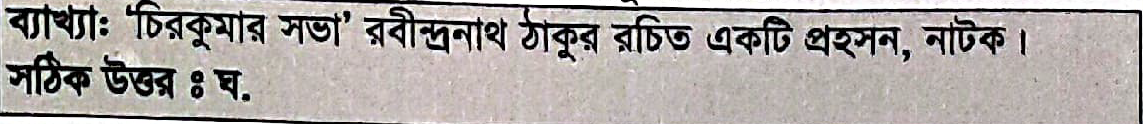 ব্যাখ্যা: ‘চিরকুমার সভা’ রবীন্দ্রনাথ ঠাকুর রচিত একটি প্রহসন, নাটক।
সঠিক উত্তর ঃ ঘ.